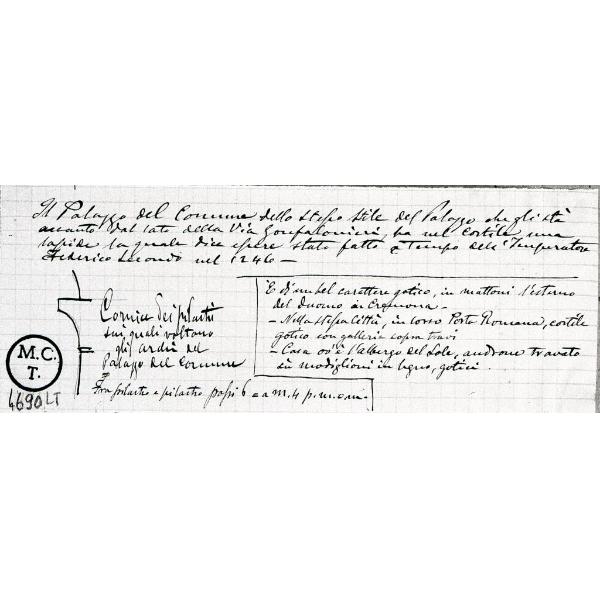 Il Palazzo del Comune dello stesso stile del Palazzo che gli stà
accanto dal lato della Via Gonfalonieri, ha nel Cortile una
lapide la quale dice essere stato fatto a tempo dell'Imperatore
Federico secondo nel 1246 —
Cornice dei pilastri
sui quali voltano
gli archi del
Palazzo del Comune
Fra pilastro e pilastro passi 6 = a m. 4 p.m.o.m.
E di un bel carattere gotico, in mattoni l'esterno
del Duomo in Cremona —
- Nella stessa Città, in corso Porta Romana, cortile
gotico con galleria sopra travi
- Casa ov'è l'albergo del Sole, androne travato
su modiglioni in legno, gotici.
M.C.
T.
4690 LT